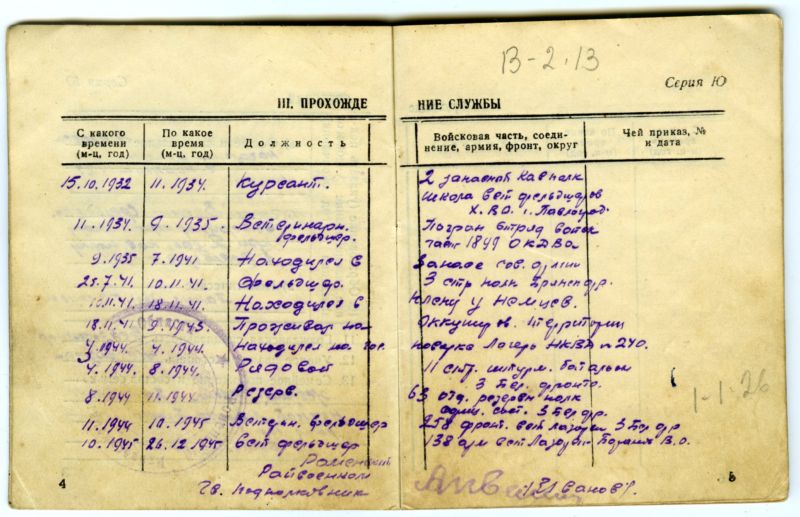 В-2.13
Серия Ю
III. ПРОХОЖДЕНИЕ СЛУЖБЫ
С какого времени (м-ц, год) По какое время (м-ц, год) Должность Войсковая часть, соединение, армия, фронт, округ Чей приказ, № и дата
15.10.1932 11.1934. Курсант. 2 запасной Кавполк
школа вет фельдшеров
Х.В.О. г. Павлоград.
11.1934. 9.1935. Ветеринарн. фельдшер. Погран отряд
част 1849 ОКДВА
9.1935 7.1941 Находился в Запасе сов. армии
25.7.41. 10.11.41. Фельдшер. 3 стр полк Брянск др.
18.11.41. Находился в плену у немцев.
18.11.41 9.1943. Проживал на Оккупиров. территории
4.1944. Находился на гос. поверке Лагерь НКВД № 240.
4.1944 8.1944. Рядовой 11 штурм. батальон
3 Бел. фронта.
8.1944 11.1944 Резерв. 63 отд. резерв полк
3 Бел др.
11.1944 10.1945 Ветерн. фельдшер 258 фронт. вет лазарет 3 Бел др
10.1945 26.12.1945 вет фельдшер 138 арм вет Лазарет В.О.
1-1-26
Раменский
Райвоенком
Гв. Подполковник
Иванов
4
5